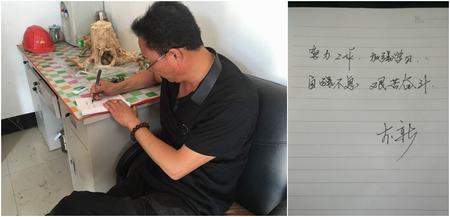 努力工作，加强学习，
自强不息，艰苦奋斗。